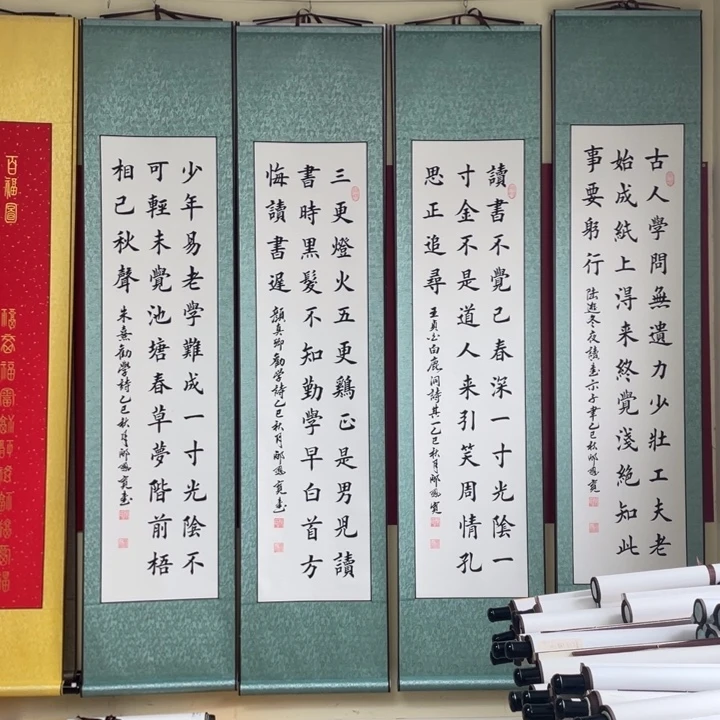 古人學問無遺力少壯工夫老
始成紙上淂来終覺淺絕知此
事要躬行
陸游冬夜讀書示子聿乙巳秋
讀書不覺已春深一寸光陰一
寸金不是道人来引笑周情孔
思正追尋
王貞白白鹿洞詩其一乙巳秋月
三更燈火五更鷄正是男児讀
書時黑髮不知勤學早白首方
悔讀書遲
顏真卿勸学詩乙巳秋月
少年易老學難成一寸光陰不
可輕未覺池塘春草夢階前梧
相已秋聲
朱熹勸學詩乙巳秋月
百福圖